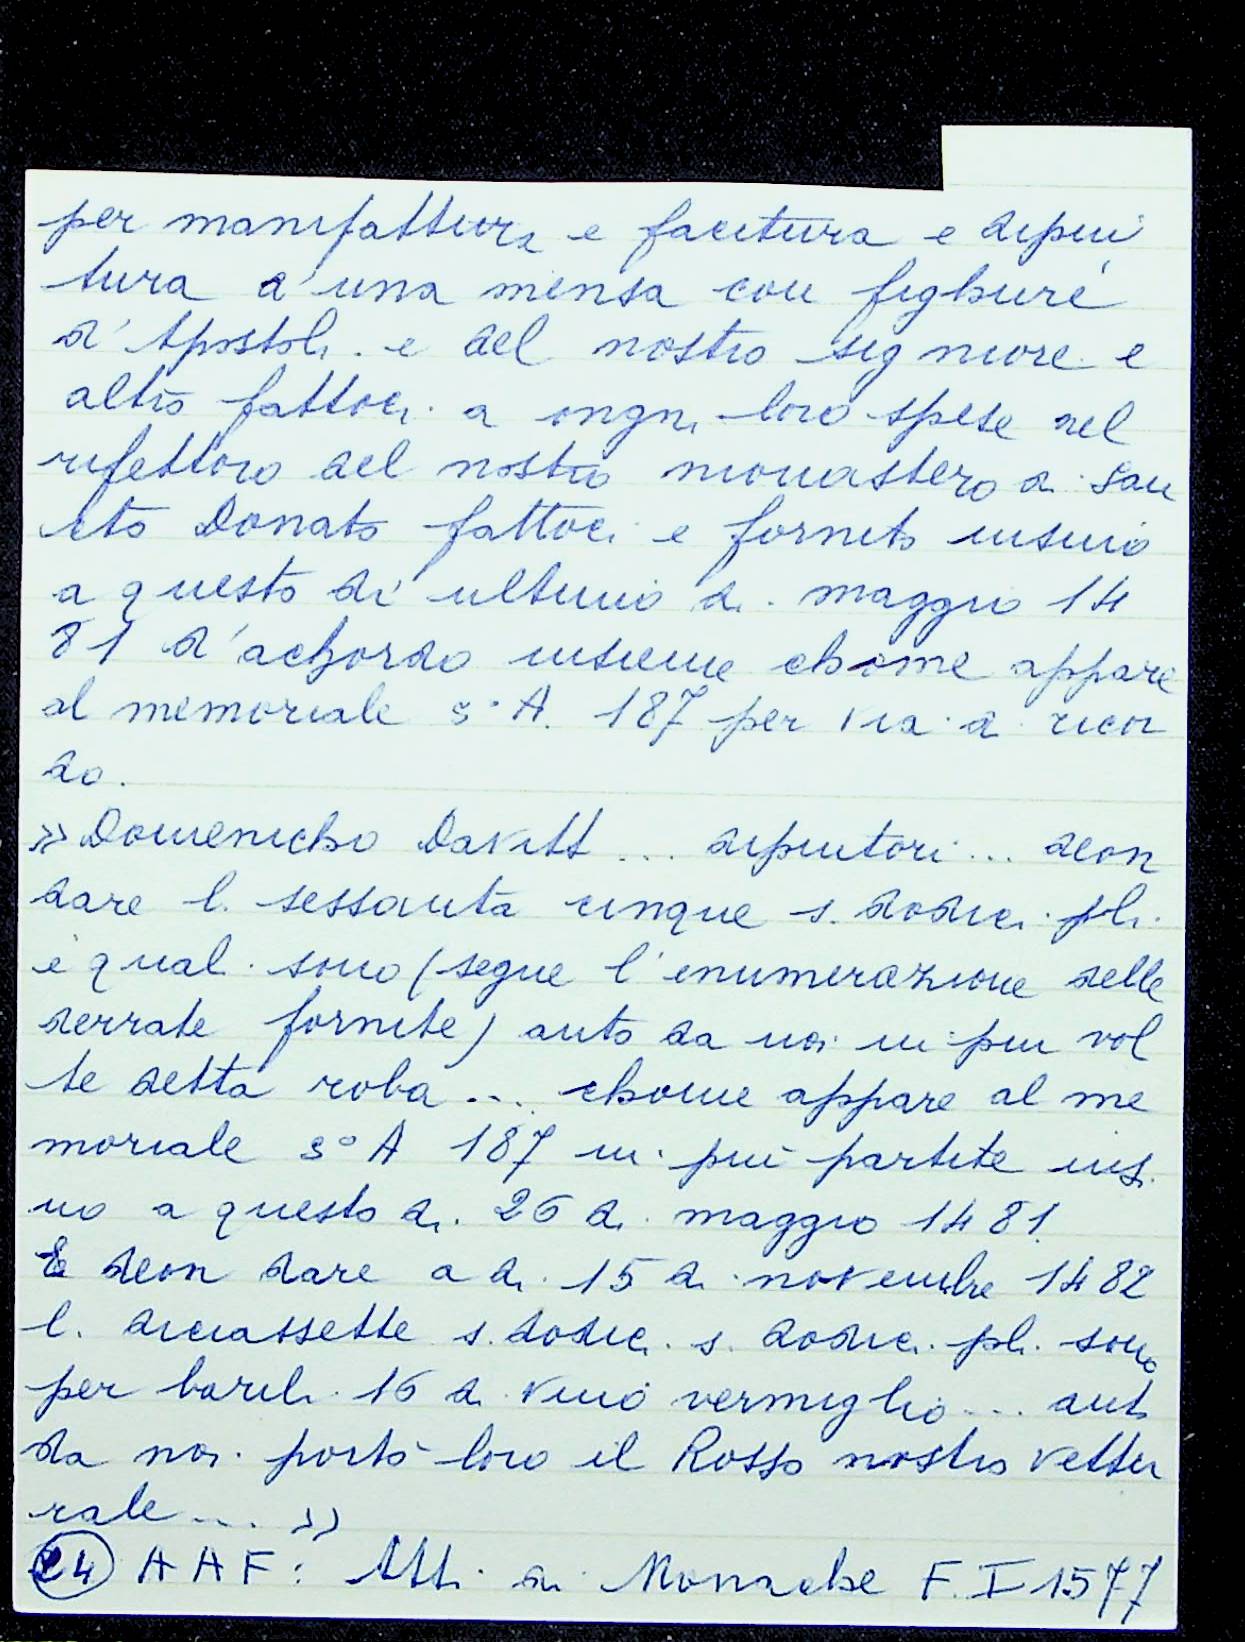 per manifattura e facitura e dipin
tura d'una mensa con fighure
d'Apostoli e del nostro signiore e
altro fattoci a ongni loro spese nel
rifettoro del nostro monastero di San
cto Donato fattoci e fornito insino
a questo dì ultimo di maggio 14
81 d'achordo insieme chome appare
al memoriale s° A. 187 per via di ricor
do.
» Domenicho Davitt ... dipintori ... deon
dare l. sessanta cinque s. dodici pli.
e quali sono (segue l'enumerazione delle
derrate fornite) auto da noi in piu vol
te detta roba ... chome appare al me
moriale s° A 187 in piu partite insi
no a questo di 26 di maggio 1481.
E deon dare a di 15 di novembre 1482
l. diciassette s. dodici s. dodici pli. sono
per barili 16 di vino vermiglio ... auti
da noi portò loro il Rosso nostro vettu
rale ... »
24 AAF: Atti di Monache F. I 1577